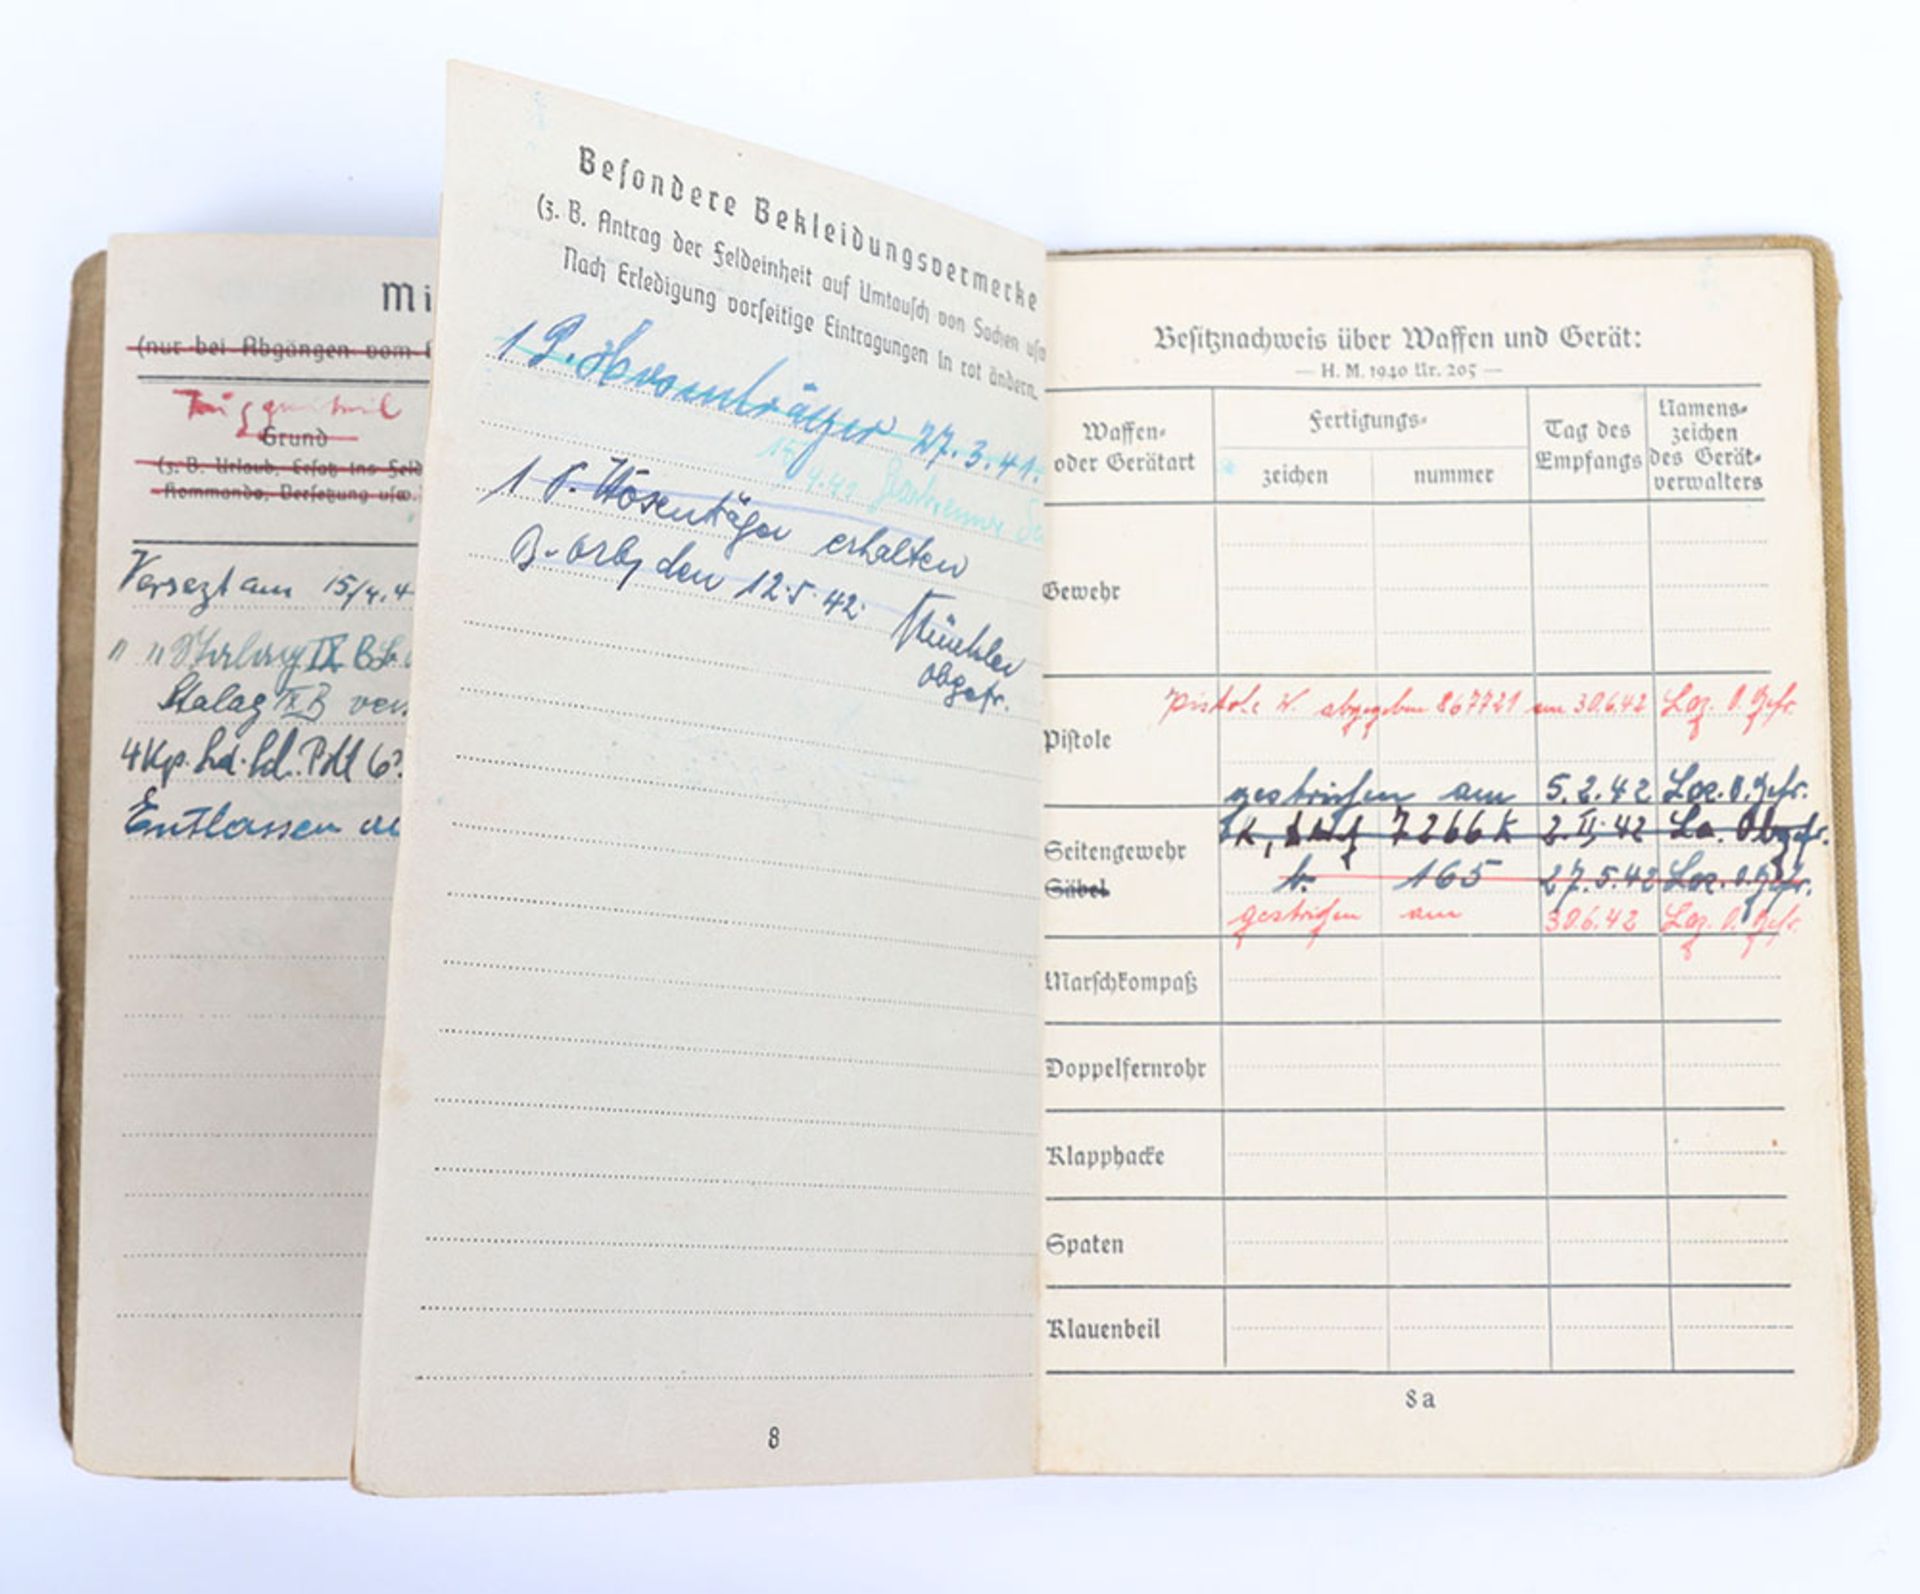 Mi
(nur bei Abgängen vom
Grund
(z. B. Urlaub, Ersatz ins Feld
Kommando, Versetzung usw.
Versezt am 15/4.4
" " IX B
Stalag IX B vers
4 Kp.
Entlassen
Besondere Bekleidungsvermerke
(z. B. Antrag der Feldeinheit auf Umtausch von Sachen usw
Nach Erledigung vorseitige Eintragungen in rot ändern.
1 P. Hosenträger 27.3.41.
1 P. Hosenträger erhalten
B. Orb, den 12.5.42.
Obgefr.
8
Besitznachweis über Waffen und Gerät:
— H. M. 1940 Nr. 205 —
Waffen- oder Gerätart
Fertigungs-
zeichen
nummer
Tag des Empfangs
Namens- zeichen des Gerät- verwalters
Gewehr
Pistole
Pistole W. abgegeben 867721 am 30.6.42 Loz. O. Gefr.
gestrichen am 5.2.42 Loz. O. Gefr.
Seitengewehr
7266 k 2.II.42 Obgefr.
Säbel
b. 165 27.5.42 Loz. O. Gefr.
gestrichen am 30.6.42 Loz. O. Gefr.
Marschkompaß
Doppelfernrohr
Klapphacke
Spaten
Klauenbeil
8a